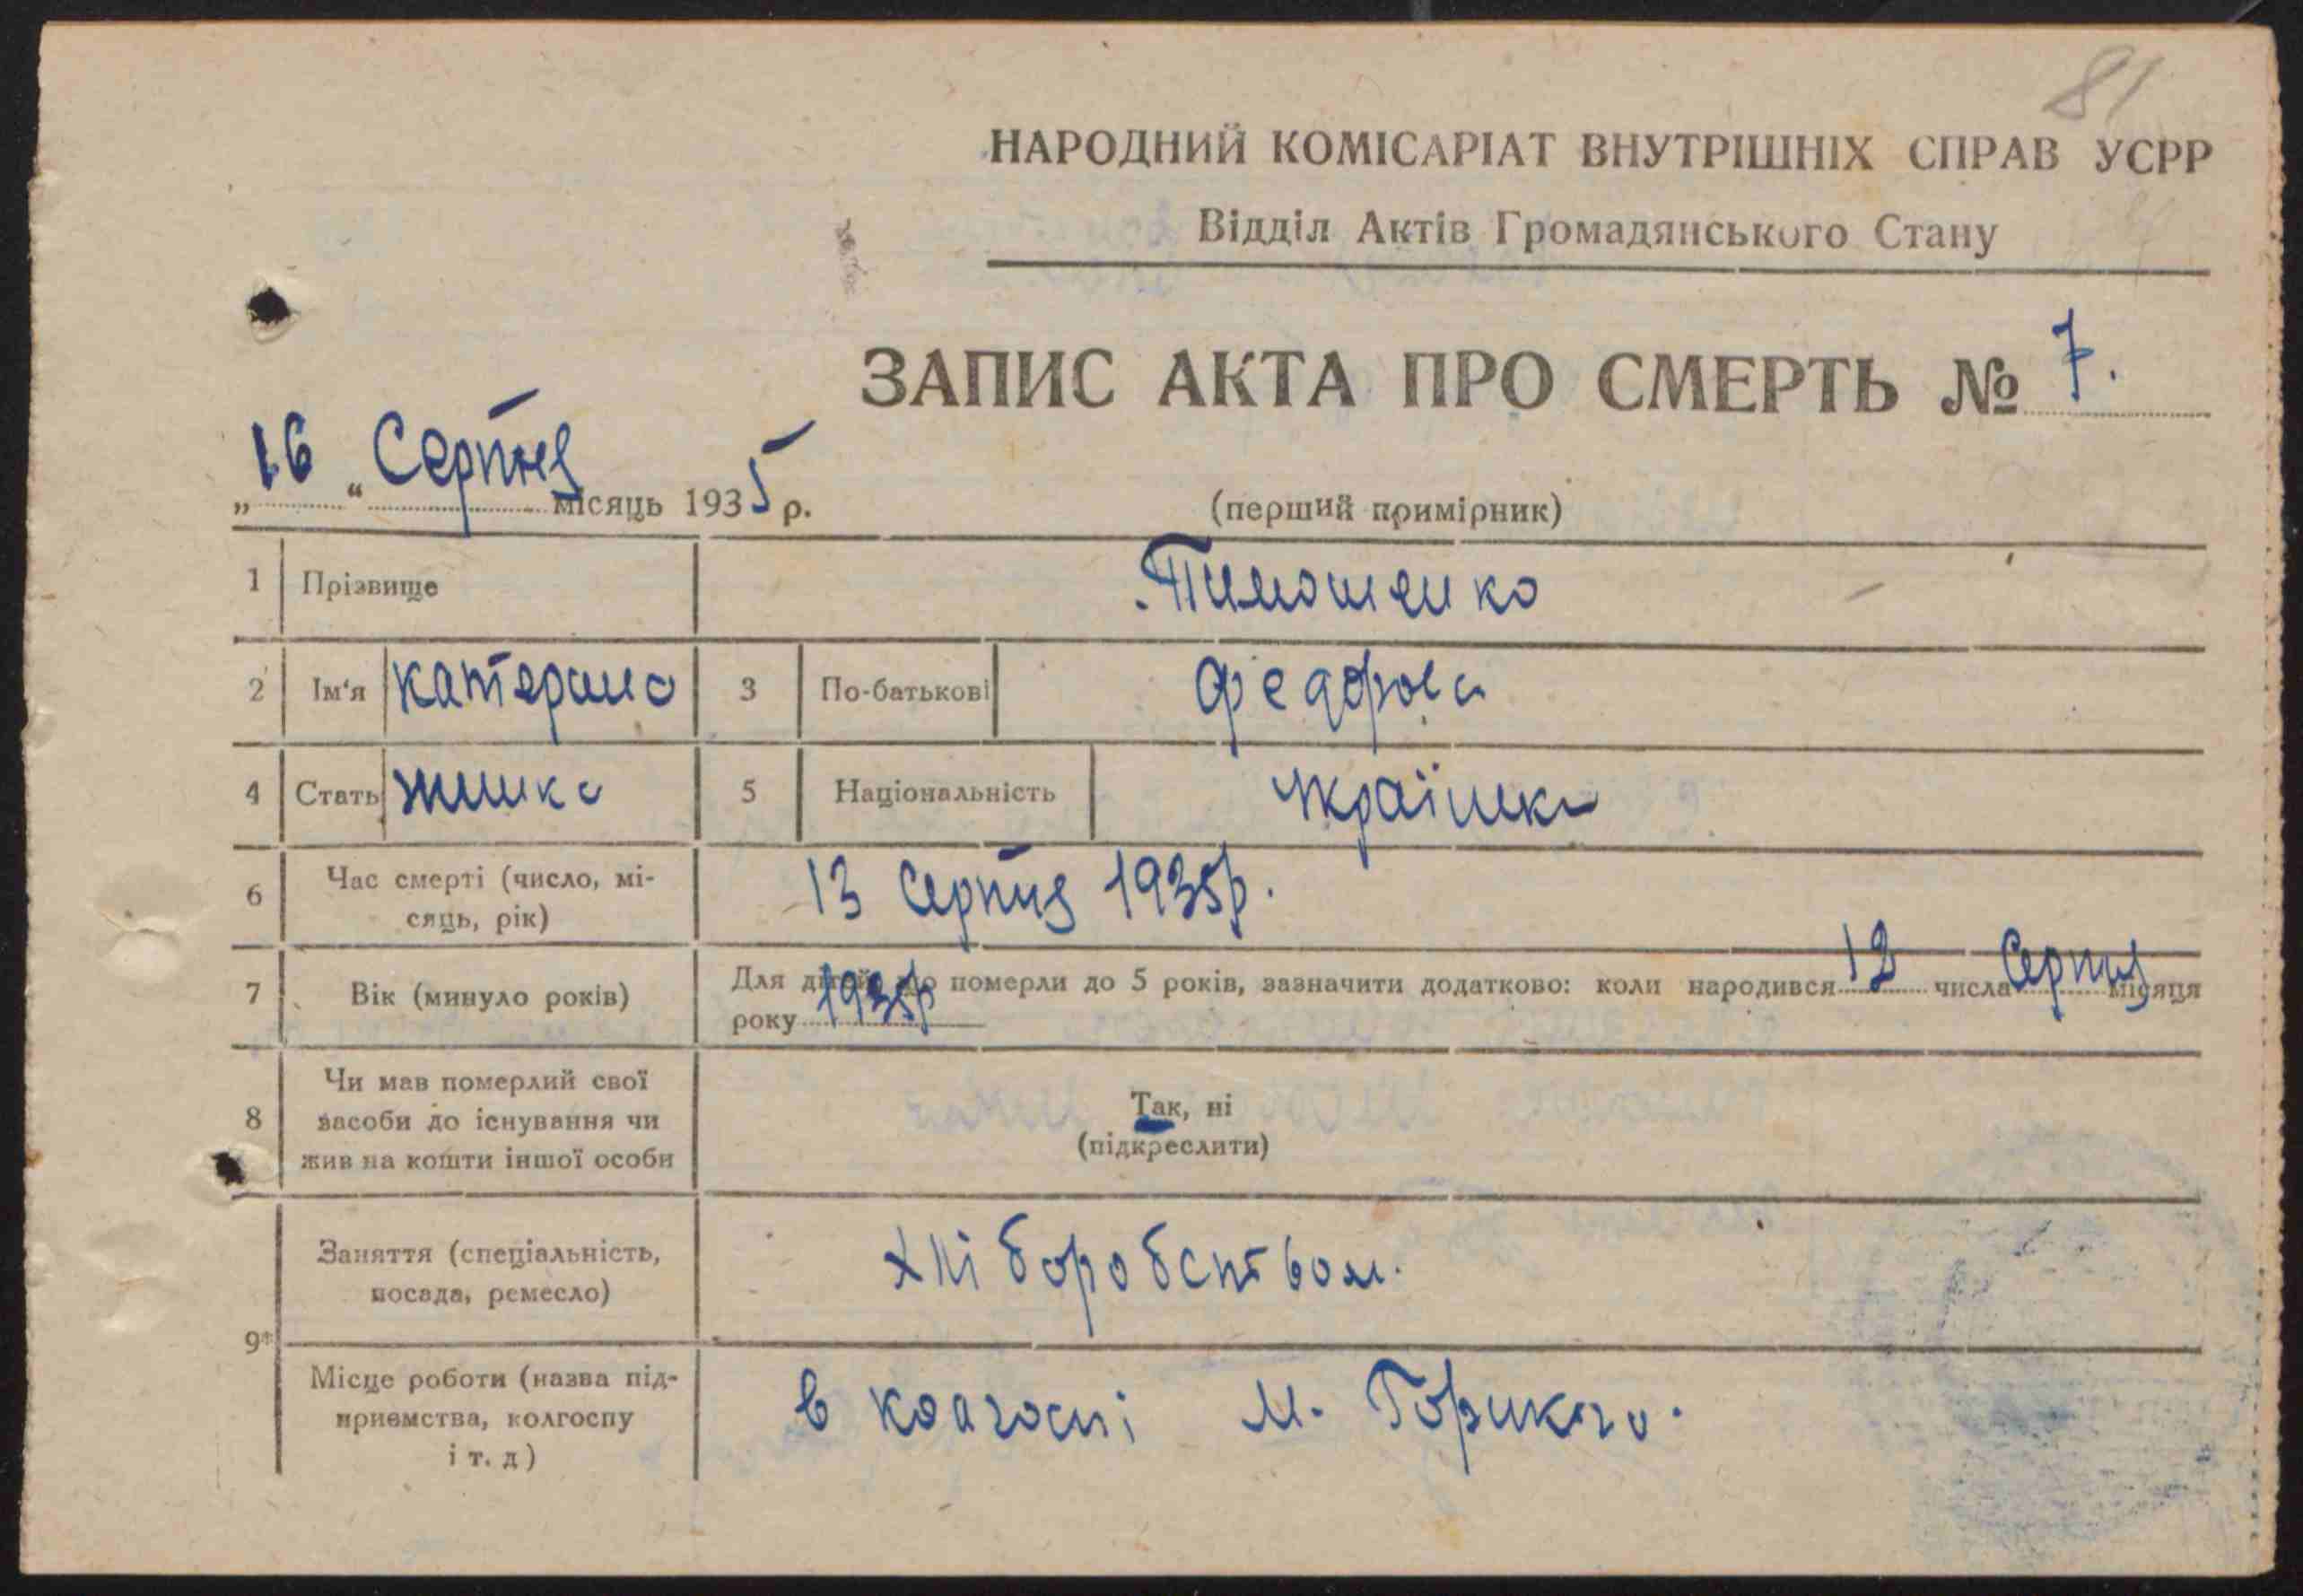 81
НАРОДНИЙ КОМІСАРІАТ ВНУТРІШНІХ СПРАВ УСРР
Відділ Актів Громадянського Стану
ЗАПИС АКТА ПРО СМЕРТЬ № 7.
„16“ Серпня місяць 1935 р.
(перший примірник)
1 Прізвище Тимошенко
2 Ім'я Катерина 3 По-батькові Федоровна
4 Стать жінка 5 Національність Українка
6 Час смерті (число, мі-
сяць, рік) 13 Серпня 1935р.
7 Вік (минуло років) Для дітей, що померли до 5 років, зазначити додатково: коли народився 12 числа Серпня місяця
року 1935р
8 Чи мав померлий свої
засоби до існування чи
жив на кошти іншої особи
Так, ні
(підкреслити)
9* Заняття (спеціальність,
посада, ремесло) Хліборобством.
Місце роботи (назва під-
приємства, колгоспу
і т. д) в колгоспі М. Горикого.